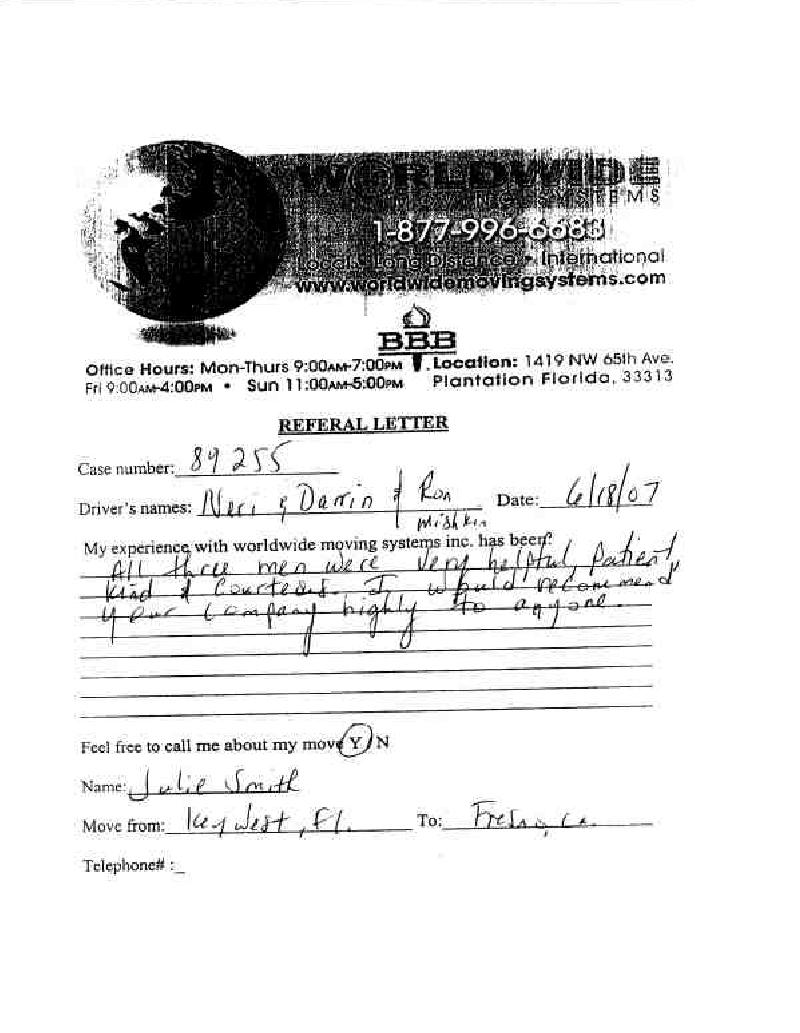 WORLDWIDE
MOVING SYSTEMS
1-877-996-6683
Local • Long Distance • International
www.worldwidemovingsystems.com
BBB
Office Hours: Mon-Thurs 9:00AM-7:00PM . Location: 1419 NW 65th Ave.
Fri 9:00AM-4:00PM • Sun 11:00AM-5:00PM Plantation Florida, 33313
REFERAL LETTER
Case number: 89255
Driver's names: Neri & Darrin & Ron Mishkin Date: 6/18/07
My experience with worldwide moving systems inc. has been?
All three men were very helpful, Patient,
Kind & Courteous. I would recommend
your company highly to anyone.
Feel free to call me about my move Y / N
Name: Julie Smith
Move from: Key West, Fl. To: Fresno, Ca.
Telephone# :_